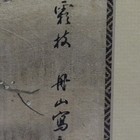 霜枝 丹山寫